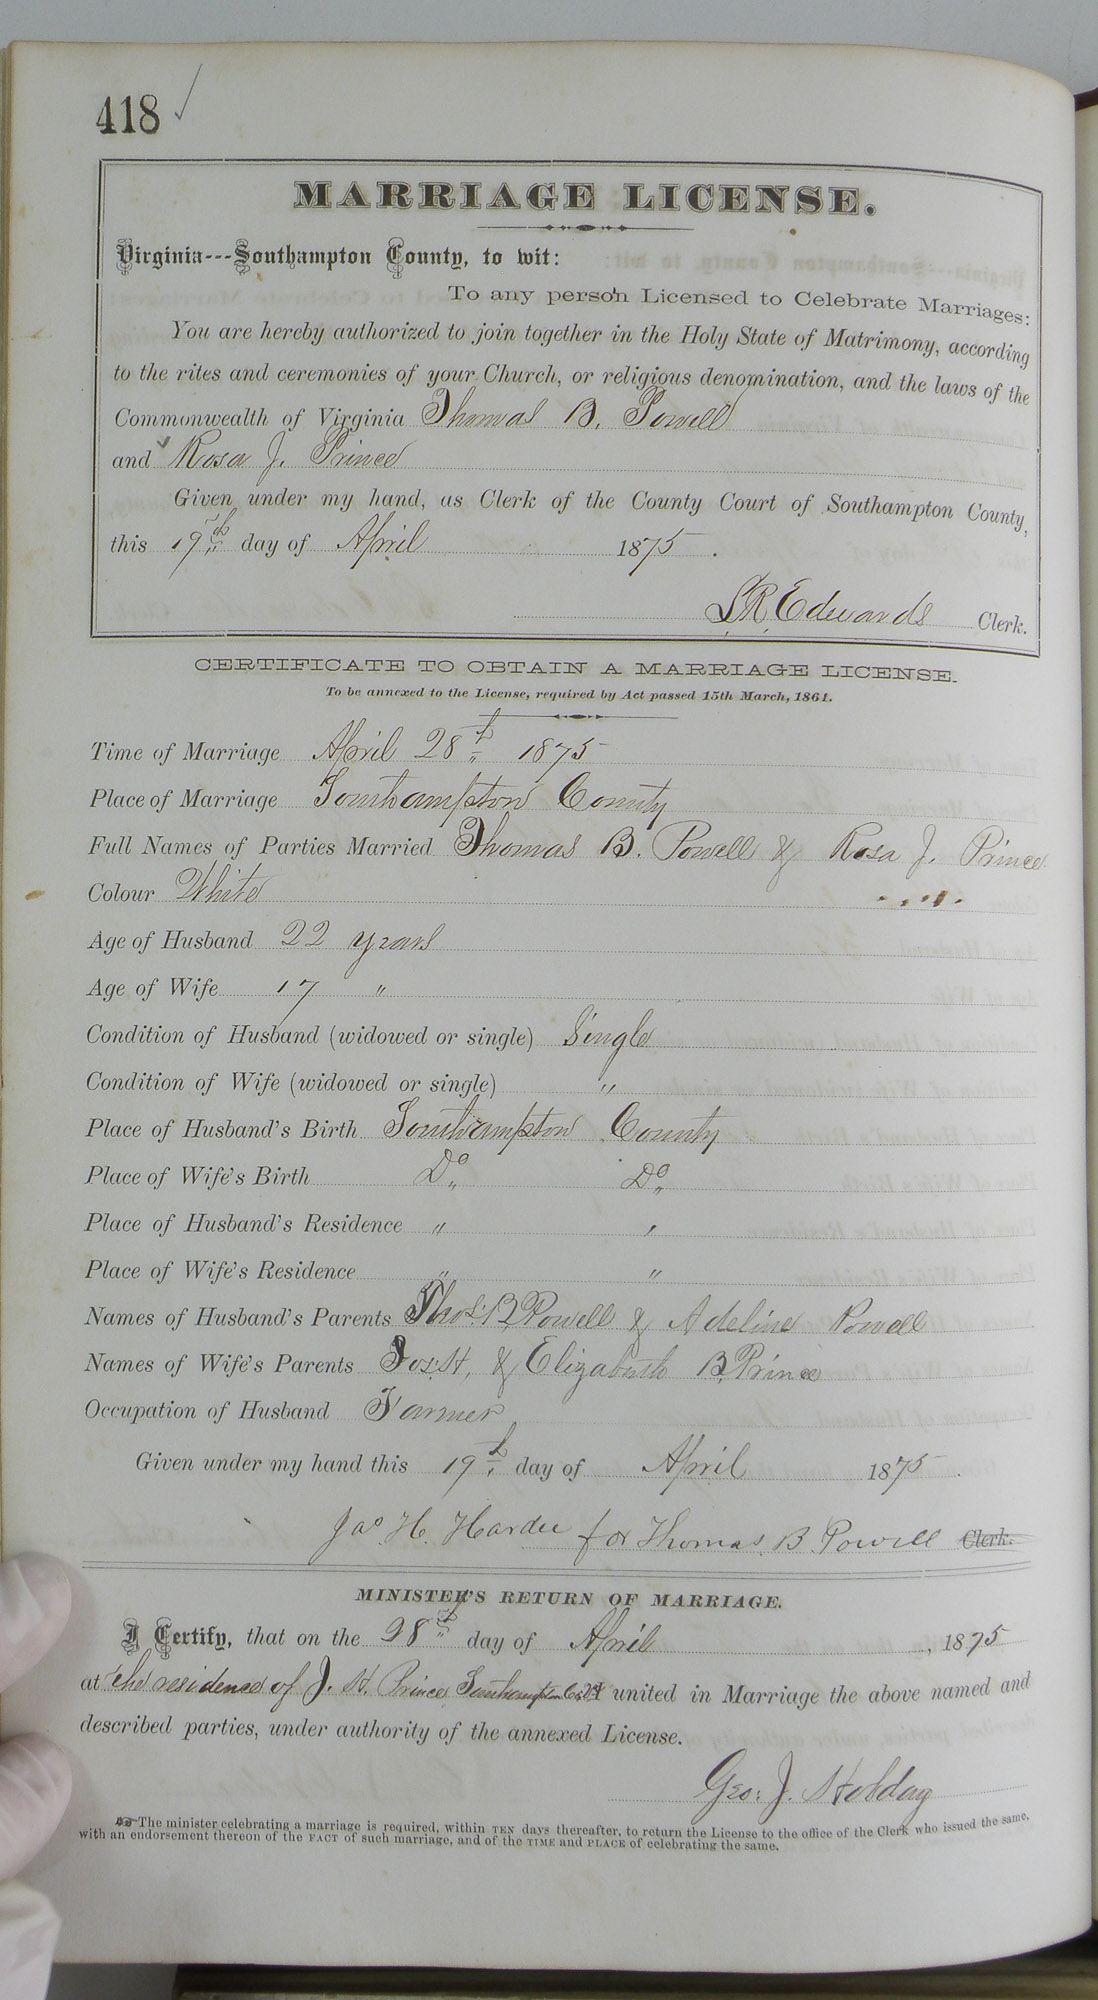 418 ✓
MARRIAGE LICENSE.
Virginia---Southampton County, to wit:
To any person Licensed to Celebrate Marriages:
You are hereby authorized to join together in the Holy State of Matrimony, according
to the rites and ceremonies of your Church, or religious denomination, and the laws of the
Commonwealth of Virginia Thomas B. Powell
and Rosa J. Prince
Given under my hand, as Clerk of the County Court of Southampton County,
this 19th day of April 1875.
L.R. Edwards Clerk.
CERTIFICATE TO OBTAIN A MARRIAGE LICENSE.
To be annexed to the License, required by Act passed 15th March, 1861.
Time of Marriage April 28th 1875
Place of Marriage Southampton County
Full Names of Parties Married Thomas B. Powell & Rosa J. Prince
Colour White " "
Age of Husband 22 years
Age of Wife 17 "
Condition of Husband (widowed or single) Single
Condition of Wife (widowed or single) "
Place of Husband's Birth Southampton County
Place of Wife's Birth Do Do
Place of Husband's Residence " "
Place of Wife's Residence " "
Names of Husband's Parents Thos. B. Powell & Adeline Powell
Names of Wife's Parents Jos. H. & Elizabeth B. Prince
Occupation of Husband Farmer
Given under my hand this 19th day of April 1875.
Jas H. Hardee for Thomas B Powell Clerk.
MINISTER'S RETURN OF MARRIAGE.
I Certify, that on the 28th day of April, 1875
at the residence of J. H. Prince Southampton Co. I united in Marriage the above named and
described parties, under authority of the annexed License.
Geo: J. Hobday
The minister celebrating a marriage is required, within TEN days thereafter, to return the License to the office of the Clerk who issued the same,
with an endorsement thereon of the FACT of such marriage, and of the TIME and PLACE of celebrating the same.